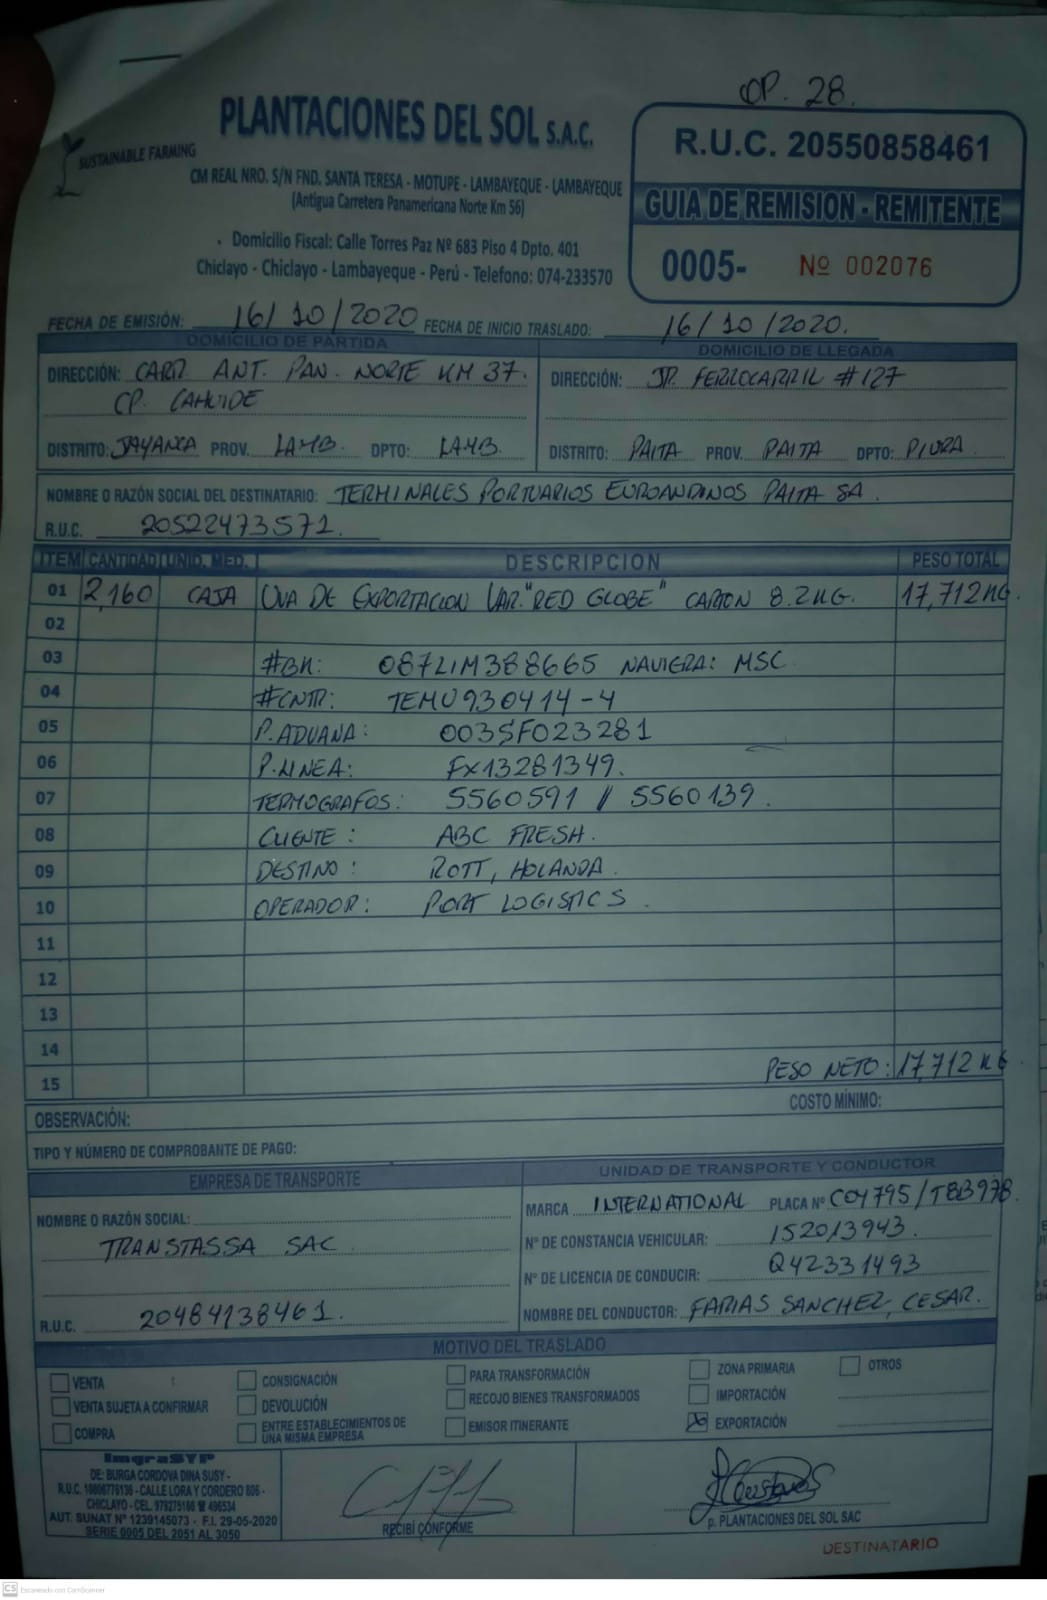 OP. 28.
SUSTAINABLE FARMING
PLANTACIONES DEL SOL S.A.C.
CM REAL NRO. S/N FND. SANTA TERESA - MOTUPE - LAMBAYEQUE - LAMBAYEQUE
(Antigua Carretera Panamericana Norte Km 56)
. Domicilio Fiscal: Calle Torres Paz Nº 683 Piso 4 Dpto. 401
Chiclayo - Chiclayo - Lambayeque - Perú - Telefono: 074-233570
R.U.C. 20550858461
GUIA DE REMISION - REMITENTE
0005- Nº 002076
FECHA DE EMISIÓN: 16/10/2020 FECHA DE INICIO TRASLADO: 16/10/2020.
DOMICILIO DE PARTIDA
DIRECCIÓN: CARR. ANT. PAN. NORTE KM 37.
CP. CAHUIDE
DISTRITO: JAYANCA PROV. LAMB. DPTO: LAMB.
DOMICILIO DE LLEGADA
DIRECCIÓN: JR. FERROCARRIL #127
DISTRITO: PAITA PROV. PAITA DPTO: PIURA
NOMBRE O RAZÓN SOCIAL DEL DESTINATARIO: TERMINALES PORTUARIOS EUROANDINOS PAITA SA.
R.U.C. 20522473571.
ITEM CANTIDAD UNID. MED. DESCRIPCION PESO TOTAL
01 2,160 CAJA UVA DE EXPORTACION VAR. "RED GLOBE" CARTON 8.2KG. 17,712KG.
02
03 #BK: 087LIM388665 NAVIERA: MSC
04 #CNTR: TEMU930414-4
05 P.ADUANA: 003SF023281
06 P.LINEA: FX13281349.
07 TERMOGRAFOS: 5560591 // 5560139.
08 CLIENTE: ABC FRESH.
09 DESTINO: ROTT, HOLANDA.
10 OPERADOR: PORT LOGISTICS.
11
12
13
14
15 PESO NETO: 17,712 KG
OBSERVACIÓN: COSTO MÍNIMO:
TIPO Y NÚMERO DE COMPROBANTE DE PAGO:
EMPRESA DE TRANSPORTE
NOMBRE O RAZÓN SOCIAL:
TRANSTASSA SAC
R.U.C. 20484138461.
UNIDAD DE TRANSPORTE Y CONDUCTOR
MARCA INTERNATIONAL PLACA Nº C0Y795/TBB978.
Nº DE CONSTANCIA VEHICULAR: 152013943.
Nº DE LICENCIA DE CONDUCIR: Q42331493
NOMBRE DEL CONDUCTOR: FARIAS SANCHEZ, CESAR.
MOTIVO DEL TRASLADO
VENTA CONSIGNACIÓN PARA TRANSFORMACIÓN ZONA PRIMARIA OTROS
VENTA SUJETA A CONFIRMAR DEVOLUCIÓN RECOJO BIENES TRANSFORMADOS IMPORTACIÓN
COMPRA ENTRE ESTABLECIMIENTOS DE UNA MISMA EMPRESA EMISOR ITINERANTE EXPORTACIÓN
ImgraSYP
DE: BURGA CORDOVA DINA SUSY -
R.U.C. 16806776136 - CALLE LORA Y CORDERO 806 -
CHICLAYO - CEL. 979275166 ☎ 496534
AUT. SUNAT Nº 1239145073 - F.I. 29-05-2020
SERIE 0005 DEL 2051 AL 3050
RECIBÍ CONFORME
p. PLANTACIONES DEL SOL SAC
DESTINATARIO
CS Escaneado con CamScanner